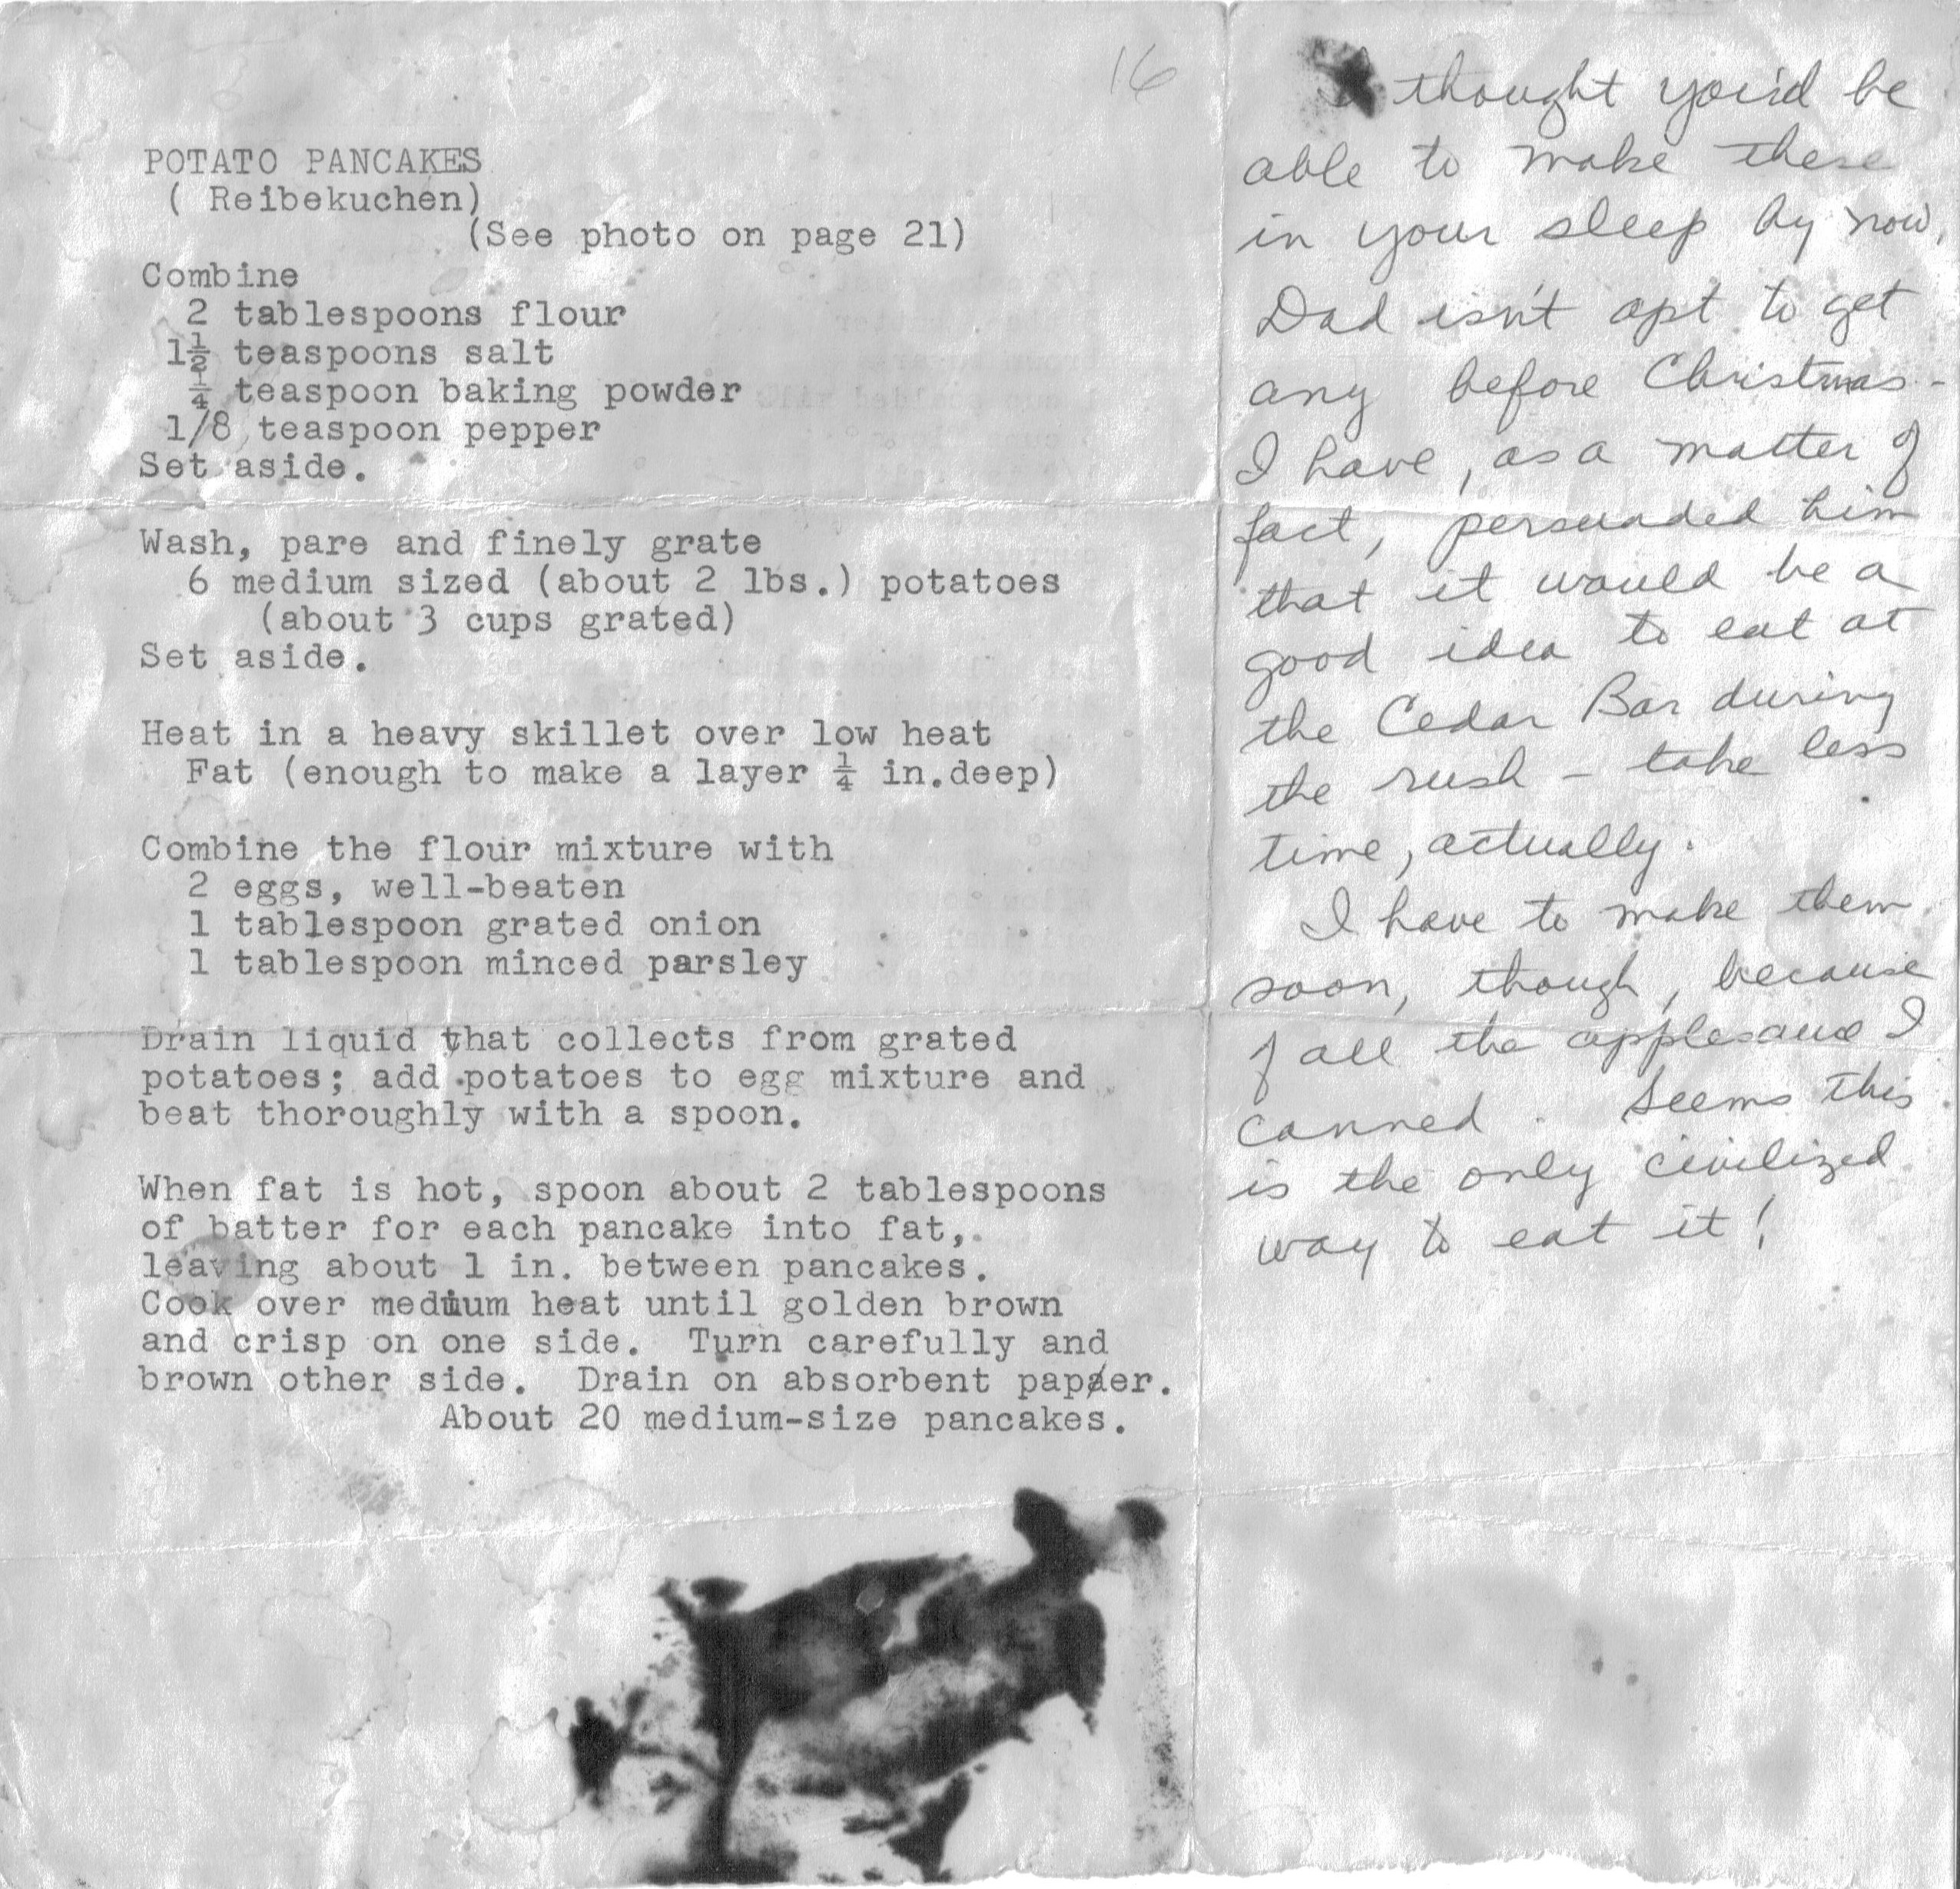 16
POTATO PANCAKES
( Reibekuchen)
(See photo on page 21)
Combine
2 tablespoons flour
1½ teaspoons salt
¼ teaspoon baking powder
1/8 teaspoon pepper
Set aside.
Wash, pare and finely grate
6 medium sized (about 2 lbs.) potatoes
(about 3 cups grated)
Set aside.
Heat in a heavy skillet over low heat
Fat (enough to make a layer ¼ in.deep)
Combine the flour mixture with
2 eggs, well-beaten
1 tablespoon grated onion
1 tablespoon minced parsley
Drain liquid that collects from grated
potatoes; add potatoes to egg mixture and
beat thoroughly with a spoon.
When fat is hot, spoon about 2 tablespoons
of batter for each pancake into fat,
leaving about 1 in. between pancakes.
Cook over medium heat until golden brown
and crisp on one side. Turn carefully and
brown other side. Drain on absorbent paper.
About 20 medium-size pancakes.
I thought you'd be
able to make these
in your sleep by now.
Dad isn't apt to get
any before Christmas -
I have, as a matter of
fact, persuaded him
that it would be a
good idea to eat at
the Cedar Bar during
the rush - take less
time, actually.
I have to make them
soon, though, because
of all the applesauce I
canned. Seems this
is the only civilized
way to eat it!